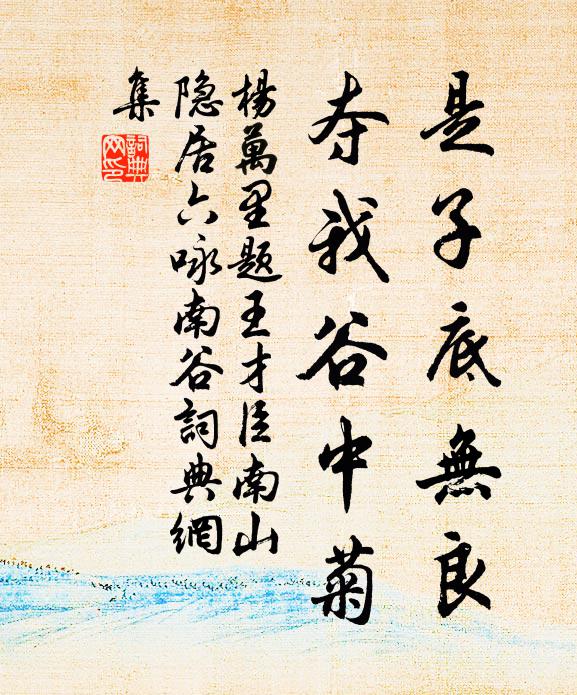 是子底無良
夺我谷中菊
楊萬里题王才臣南山
隐居六咏南谷詞典網
集
詞典網印